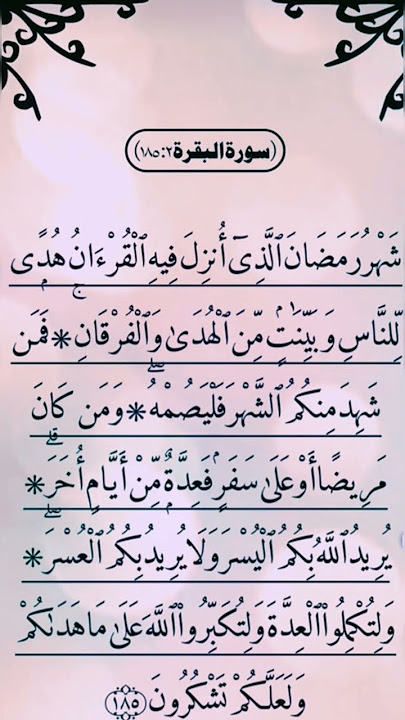 (سورة البقرة ٢:١٨٥)
شَهْرُ رَمَضَانَ ٱلَّذِىٓ أُنزِلَ فِيهِ ٱلْقُرْءَانُ هُدًى
لِّلنَّاسِ وَبَيِّنَٰتٍ مِّنَ ٱلْهُدَىٰ وَٱلْفُرْقَانِ ۚ * فَمَن
شَهِدَ مِنكُمُ ٱلشَّهْرَ فَلْيَصُمْهُ ۖ * وَمَن كَانَ
مَرِيضًا أَوْ عَلَىٰ سَفَرٍ فَعِدَّةٌ مِّنْ أَيَّامٍ أُخَرَ ۗ *
يُرِيدُ ٱللَّهُ بِكُمُ ٱلْيُسْرَ وَلَا يُرِيدُ بِكُمُ ٱلْعُسْرَ ۖ *
وَلِتُكْمِلُوا۟ ٱلْعِدَّةَ وَلِتُكَبِّرُوا۟ ٱللَّهَ عَلَىٰ مَا هَدَىٰكُمْ
وَلَعَلَّكُمْ تَشْكُرُونَ ١٨٥